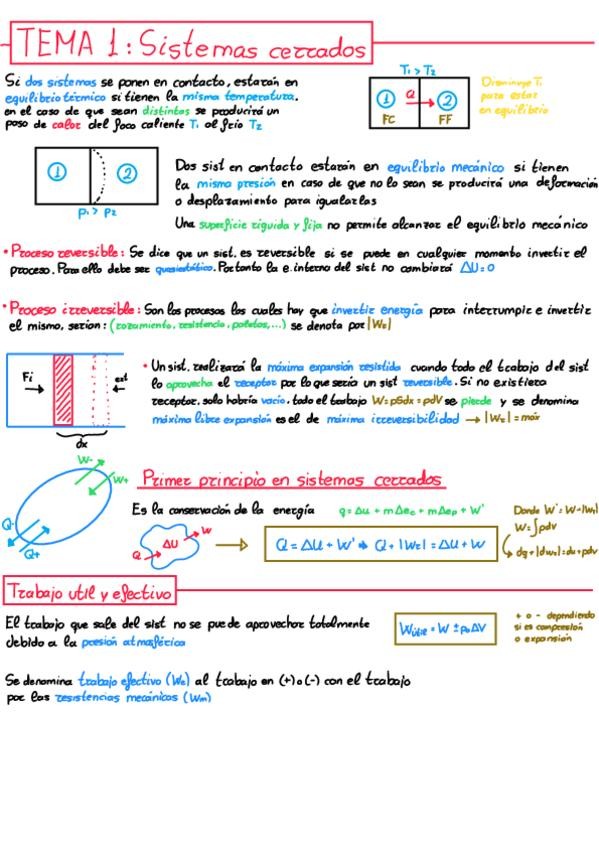 TEMA 1: Sistemas cerrados
Si dos sistemas se ponen en contacto, estarán en
equilibrio térmico si tienen la misma temperatura.
en el caso de que sean distintas se producirá un
paso de calor del foco caliente T1 al frío T2
T1 > T2
1 Q 2
FC FF
Disminuye T1
para estar
en equilibrio
1 2
p1 > p2
Dos sist en contacto estarán en equilibrio mecánico si tienen
la misma presión en caso de que no lo sean se producirá una deformación
o desplazamiento para igualarlas
Una superficie riguida y fija no permite alcanzar el equilibrio mecánico
• Proceso reversible: Se dice que un sist. es reversible si se puede en cualquier momento invertir el
proceso. Para ello debe ser quasiestático. Portanto la e.interna del sist no cambiará ΔU=0
• Proceso irreversible: Son los procesos los cuales hay que invertir energía para interrumpir e invertir
el mismo, serian: (rozamiento, resistencia, paletas,...) se denota por |Wr|
Fi ext
dx
• Un sist. realizará la máxima expansión resistida cuando todo el trabajo del sist
lo aprovecha el receptor por lo que sería un sist reversible. Si no existiera
receptor, solo habría vacío, todo el trabajo W=pSdx=pdV se pierde y se denomina
máxima libre expansión es el de máxima irreversibilidad → |Wr| = máx
W-
W+
Q-
Q+
Primer principio en sistemas cerrados
Es la conservación de la energía q = Δu + mΔec + mΔep + W'
Donde W' = W-|Wr|
W=∫pdv
dq+|dwr|=du+pdv
Q ΔU W
Q = ΔU + W' ⇒ Q + |Wr| = ΔU + W
Trabajo util y efectivo
El trabajo que sale del sist no se puede aprovechar totalmente
debido a la presión atmosférica
Wútil = W ± p₀ΔV
+ o - dependiendo
si es compresión
o expansión
Se denomina trabajo efectivo (We) al trabajo en (+) o (-) con el trabajo
por las resistencias mecánicas (Wm)